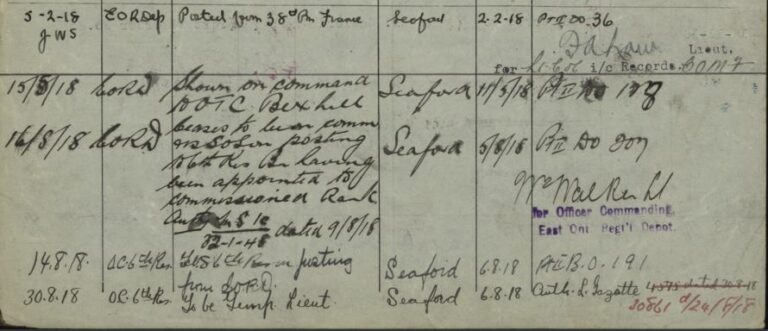 5-2-18 EORDep Posted from 38th Bn France Seaford 2.2.18 Pt II DO. 36
JWS
Lieut.
for Lt. Col i/c Records. COMF
15/5/18 EORD Shown on command Seaford 11/5/18 Pt II DO
to OTC Bexhill
16/8/18 EORD Ceases to be on comm Seaford 5/8/18 Pt II DO 207
as SOS on posting
to 6th Res Bn having
been appointed to
commissioned Rank
dated 9/8/18
32-1-48
for Officer Commanding,
East Ont. Reg't'l Depot.
14.8.18. OC 6th Res. T.O.S 6th Res on posting Seaford 6.8.18 Pt II B.O. 191
from EORD.
30.8.18 OC. 6th Res. To be Temp. Lieut. Seaford 6.8.18 Auth. L. Gazette dated 30.8.18
30861 d/24/8/18